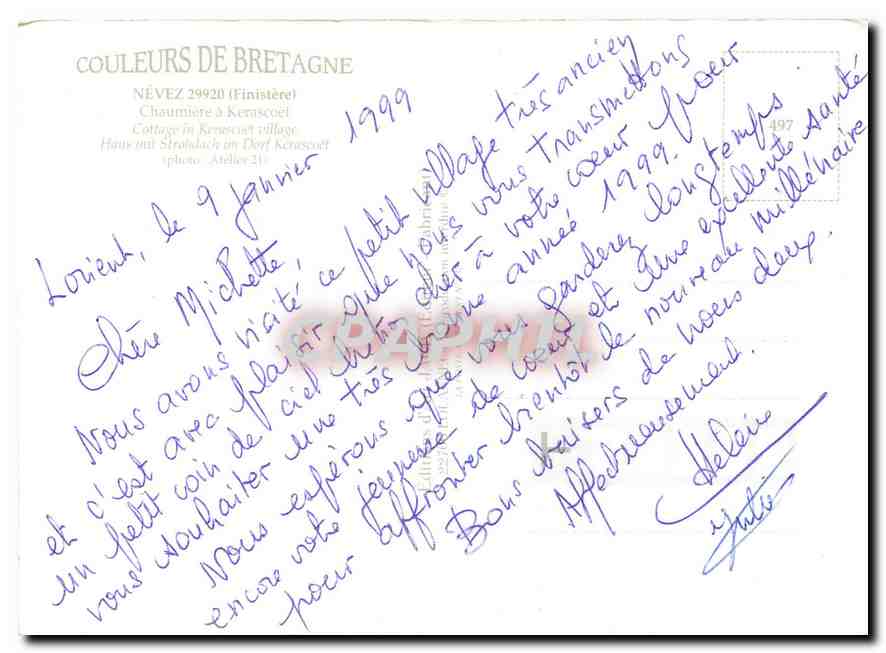 COULEURS DE BRETAGNE
NÉVEZ 29920 (Finistère)
Chaumière à Kerascoët
Cottage in Kerascoët village
Haus mit Strohdach im Dorf Kerascoët
(photo : Atelier 21)
497
Lorient, le 9 janvier 1999
Chère Michette,
Nous avons visité ce petit village très ancien
et c'est avec plaisir que nous vous transmettons
un petit coin de ciel cher à votre cœur pour
vous souhaiter une très bonne année 1999.
Nous espérons que vous garderez longtemps
encore votre jeunesse de cœur et une excellente santé
pour affronter bientôt le nouveau millénaire
Bons baisers de nous deux.
Affectueusement.
CRAPHIL